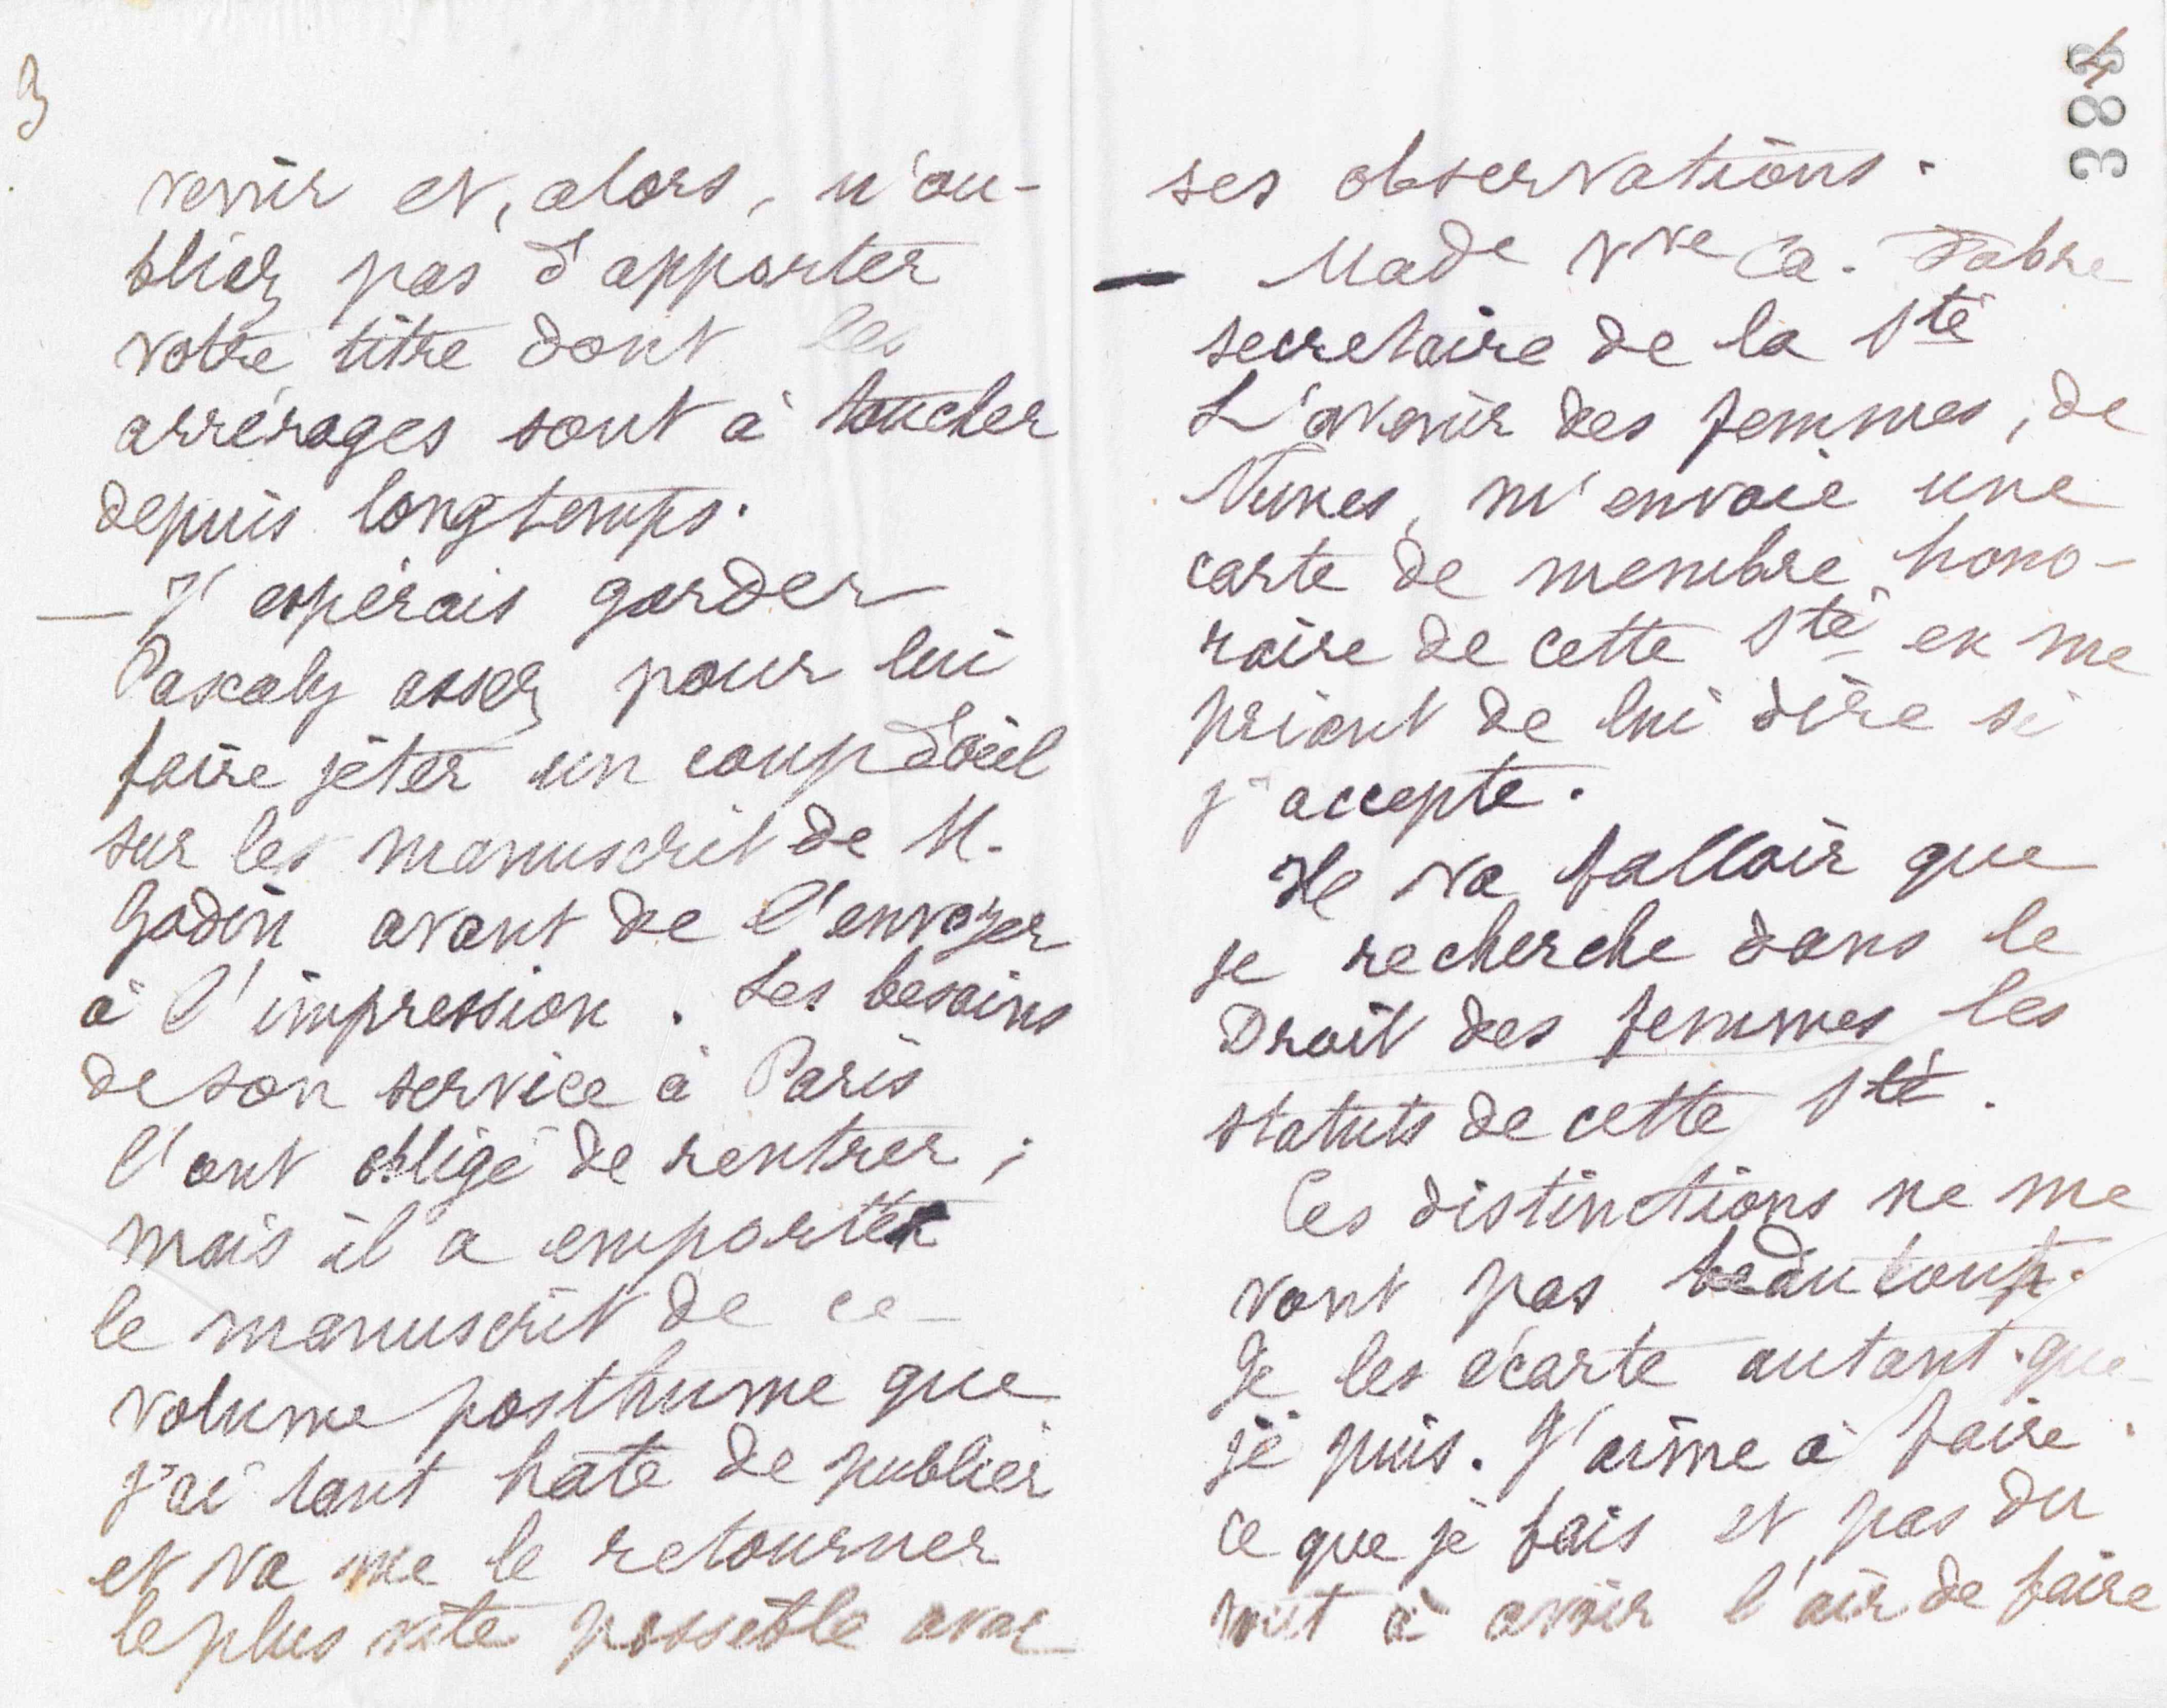 3
venir et, alors, n'ou-
bliez pas d'apporter
votre titre dont les
arrérages sont à toucher
depuis longtemps.
— J'espérais garder
Pascaly assez pour lui
faire jeter un coup d'œil
sur les manuscrit de M.
Godin avant de l'envoyer
à l'impression. Les besoins
de son service à Paris
l'ont obligé de rentrer ;
mais il a emporté
le manuscrit de ce
volume posthume que
j'ai tant hâte de publier
et va me le retourner
le plus vite possible avec
383
4
ses observations.
— Made Vve Ca. Fabre
secretaire de la Sté
L'avenir des femmes, de
Nimes, m'envoie une
carte de membre hono-
raire de cette Sté en me
priant de lui dire si
j'accepte.
Il va falloir que
je recherche dans le
Droit des femmes les
statuts de cette Sté.
Ces distinctions ne me
vont pas beaucoup.
Je les écarte autant que
je puis. J'aime à faire
ce que je fais et pas du
tout à avoir l'air de faire